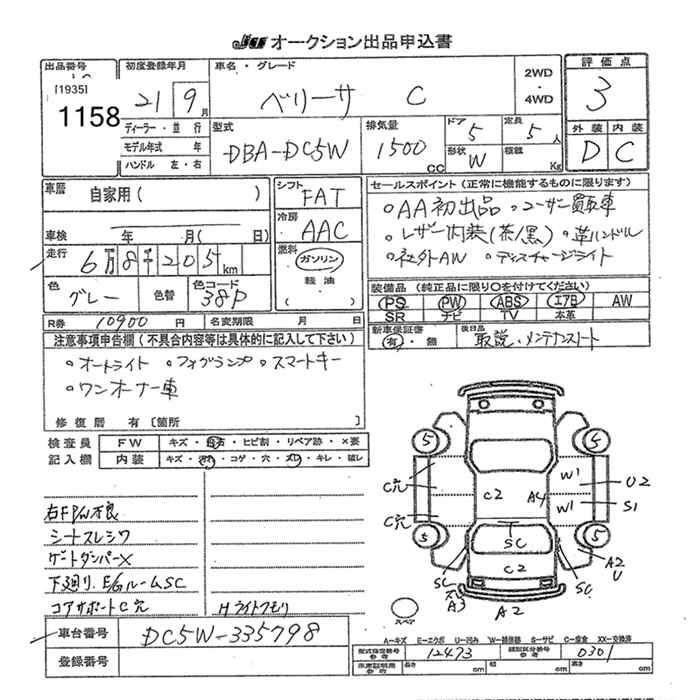 JU オークション出品申込書
出品番号
[1935]
1158
初度登録年月
21 9月
車名・グレード
ベリーサ C
2WD・4WD
評価点
3
外装 内装
D C
ディーラー・並行
モデル年式 年
ハンドル 左・右
型式
DBA-DC5W
排気量
1500 CC
ドア 5
定員 5人
形状 W
積載 Kg
車歴
自家用( )
車検 年 月( 日)
走行
6万8千205km
色
グレー
色替
色コード
38P
R券 10900円 名変期限 月 日
シフト
FAT
冷房
AAC
燃料
ガソリン
軽油
( )
セールスポイント(正常に機能するものに限ります)
。AA初出品 。ユーザー買取車
。レザー内装(茶/黒) 。革ハンドル
。社外AW 。ディスチャージライト
装備品(純正品に限り〇を付けてください)
PS PW ABS エアB AW
SR ナビ TV 本革
新車保証書
有・無
後日品
取説、メンテナンスノート
注意事項申告欄(不具合内容等は具体的に記入して下さい)
。オートライト 。フォグランプ 。スマートキー
。ワンオーナー車
修復歴 有〔箇所 〕
検査員
記入欄
FW キズ・飛石・ヒビ割・リペア跡・×要
内装 キズ・汚れ・コゲ・穴・スレ・キレ・破レ
右FPW不良
シートスレシワ
ゲートダンパーX
下廻リ、E/GルームSC
コアサポートC穴
Hライトクモリ
車台番号 DC5W-335798
登録番号
5 5
C穴 C2 A4 W1 U2
C穴 W1 S1
5 5
SC
SC C2 SC A2 U
A3 A2
スペア
A-キズ E-エクボ U-凹み W-補修跡 S-サビ C-腐食 XX-交換済
型式指定番号 参考 12473 類別区分番号 参考 0301
車庫証明用 参考 長さ cm 幅 cm 高さ cm